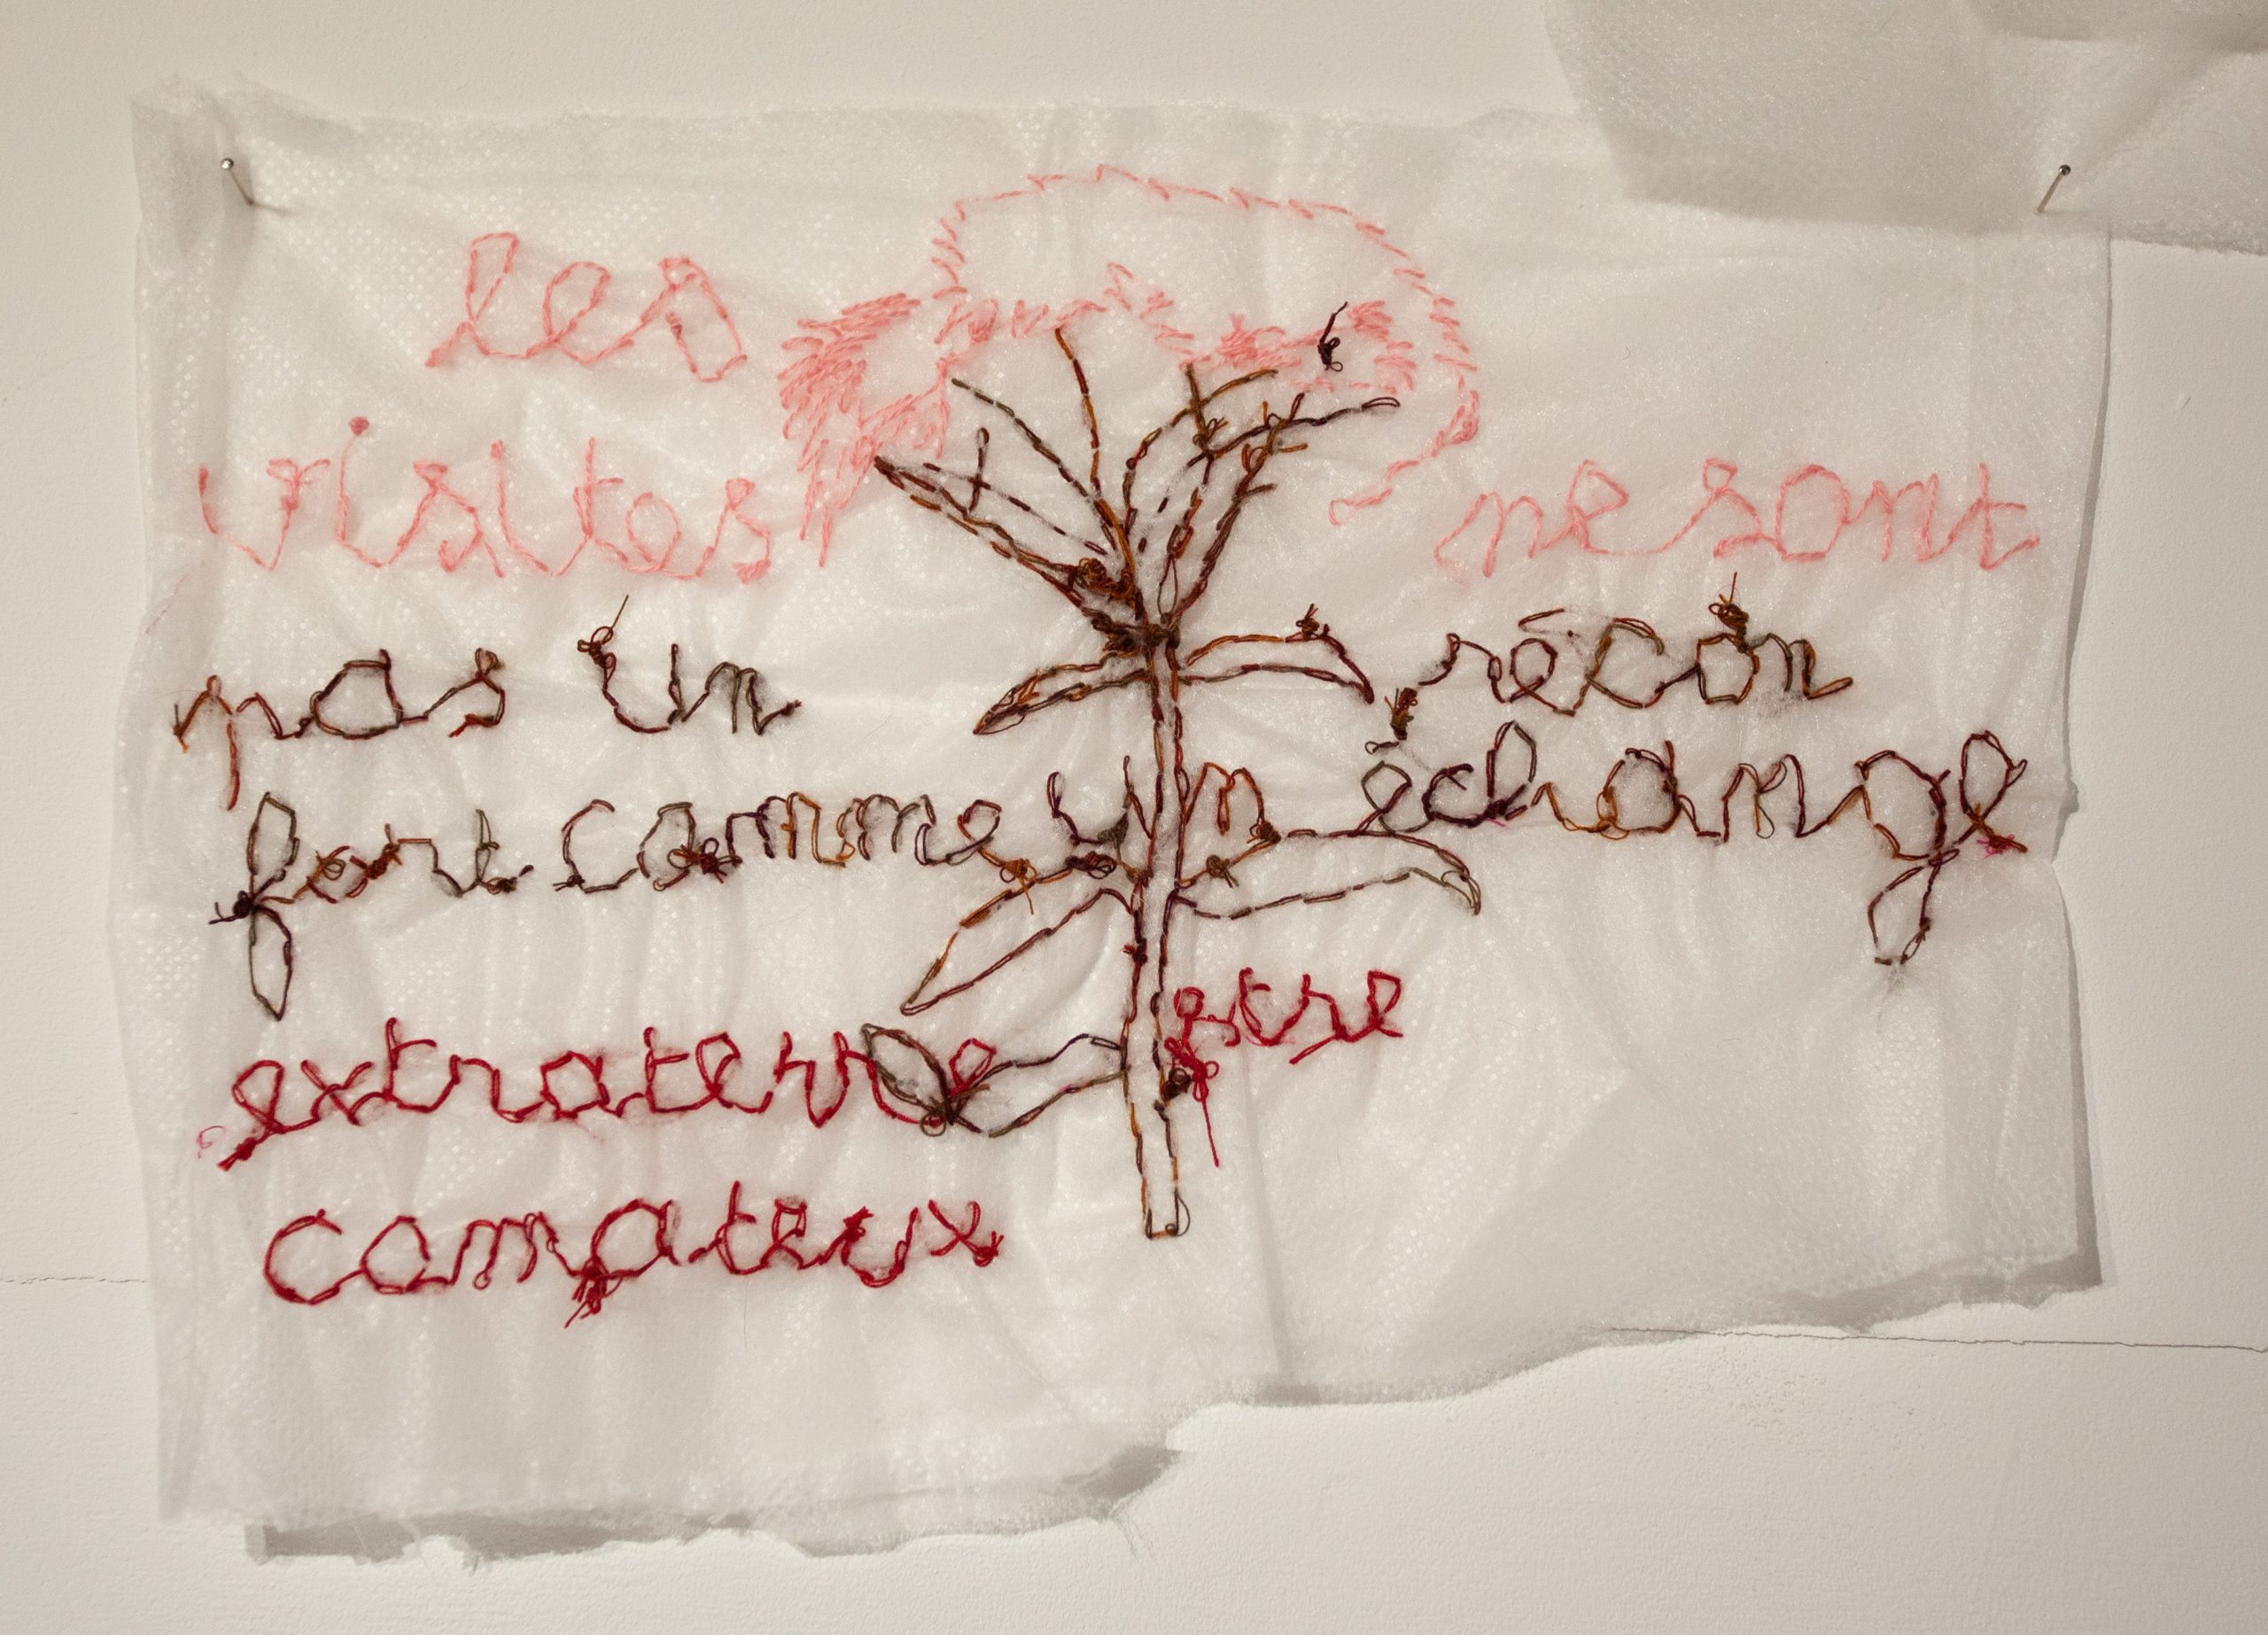 les
visites ne sont
pas un récon
fort comme un échange
extraterrestre
comateux